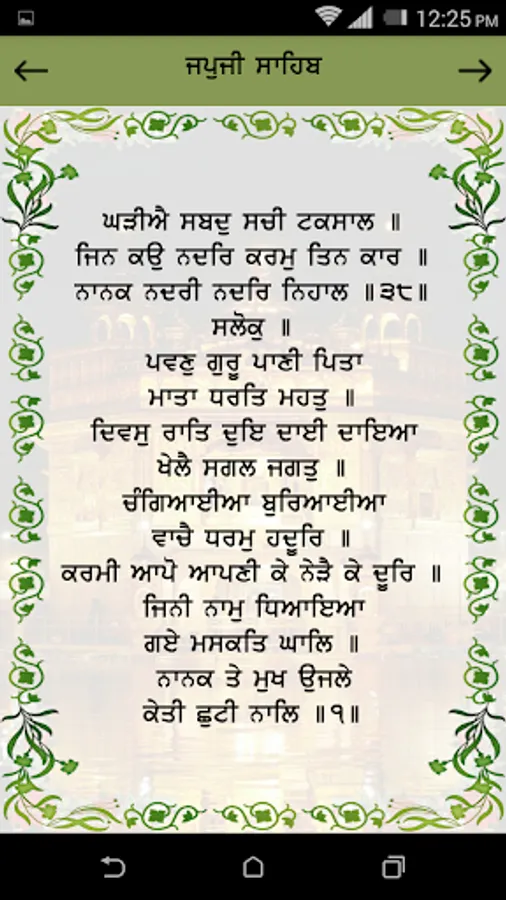 12:25 PM
ਜਪੁਜੀ ਸਾਹਿਬ
ਘੜੀਐ ਸਬਦੁ ਸਚੀ ਟਕਸਾਲ ॥
ਜਿਨ ਕਉ ਨਦਰਿ ਕਰਮੁ ਤਿਨ ਕਾਰ ॥
ਨਾਨਕ ਨਦਰੀ ਨਦਰਿ ਨਿਹਾਲ ॥੩੮॥
ਸਲੋਕੁ ॥
ਪਵਣੁ ਗੁਰੂ ਪਾਣੀ ਪਿਤਾ
ਮਾਤਾ ਧਰਤਿ ਮਹਤੁ ॥
ਦਿਵਸੁ ਰਾਤਿ ਦੁਇ ਦਾਈ ਦਾਇਆ
ਖੇਲੈ ਸਗਲ ਜਗਤੁ ॥
ਚੰਗਿਆਈਆ ਬੁਰਿਆਈਆ
ਵਾਚੈ ਧਰਮੁ ਹਦੂਰਿ ॥
ਕਰਮੀ ਆਪੋ ਆਪਣੀ ਕੇ ਨੇੜੈ ਕੇ ਦੂਰਿ ॥
ਜਿਨੀ ਨਾਮੁ ਧਿਆਇਆ
ਗਏ ਮਸਕਤਿ ਘਾਲਿ ॥
ਨਾਨਕ ਤੇ ਮੁਖ ਉਜਲੇ
ਕੇਤੀ ਛੁਟੀ ਨਾਲਿ ॥੧॥